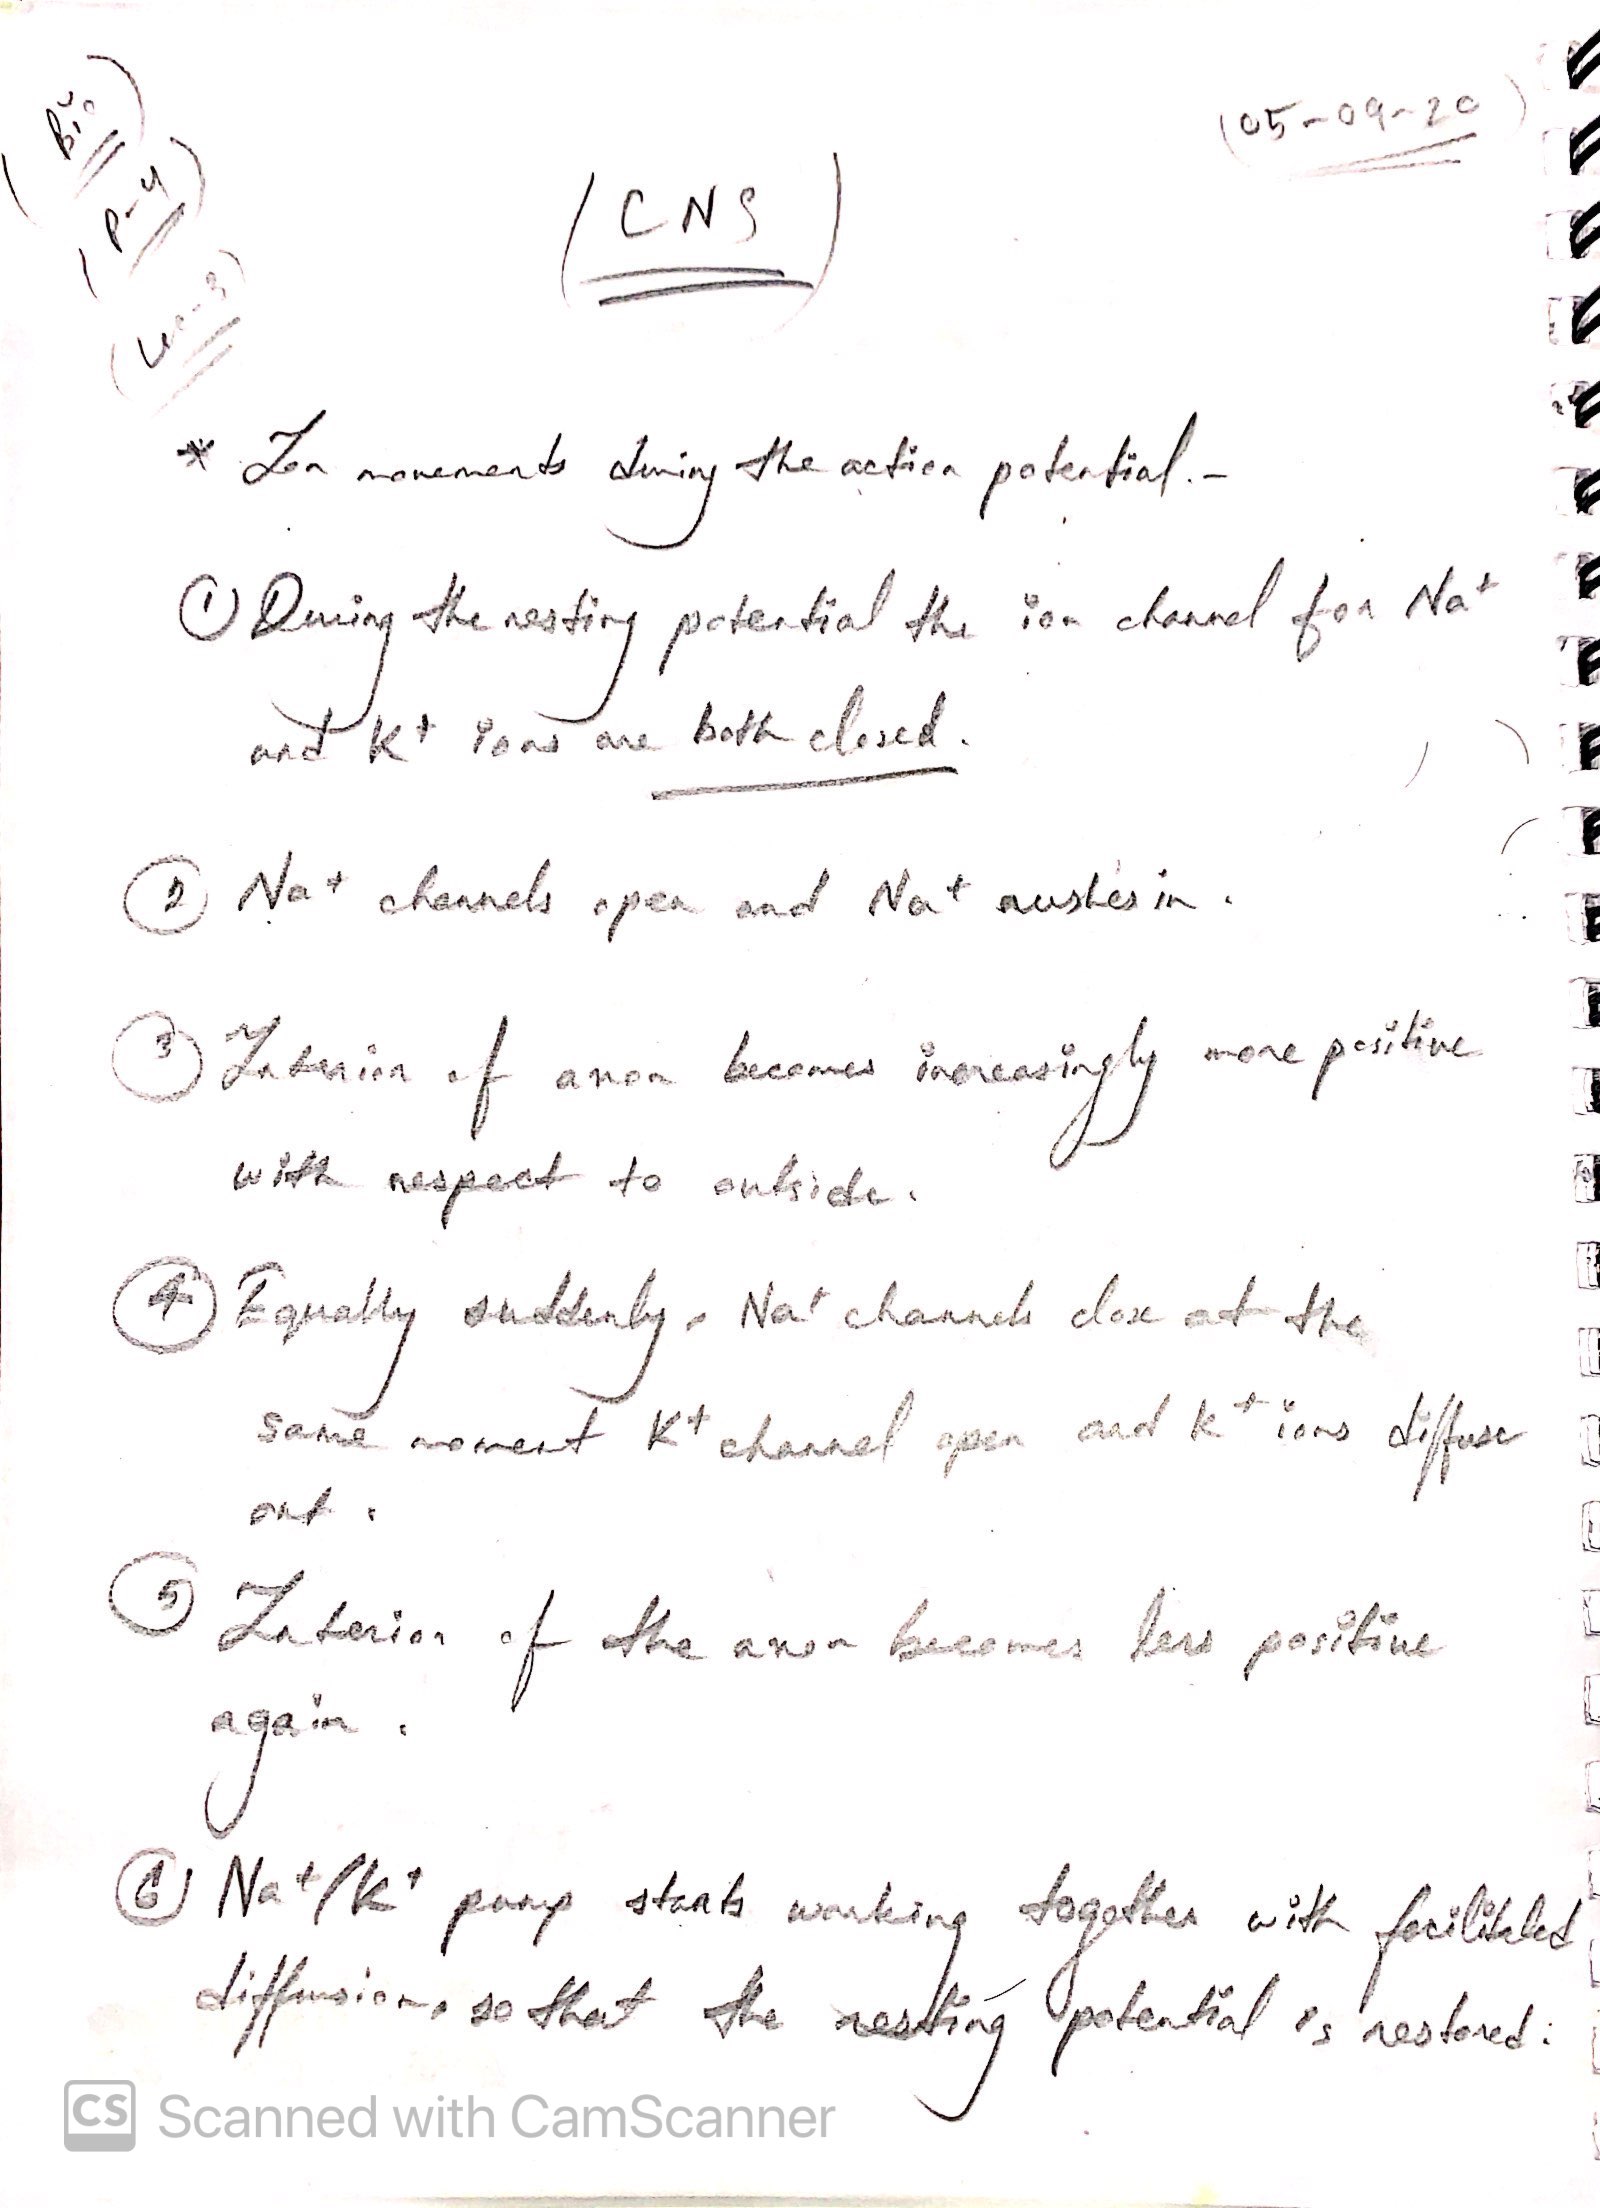 (Bio)
(P-4)
(Lec-3)
(05-09-20)
(CNS)
* Ion movements during the action potential.-
① During the resting potential the ion channel for Na⁺
and K⁺ ions are both closed.
② Na⁺ channels open and Na⁺ rushes in.
③ Interior of axon becomes increasingly more positive
with respect to outside.
④ Equally suddenly, Na⁺ channels close at the
same moment K⁺ channel open and K⁺ ions diffuse
out.
⑤ Interior of the axon becomes less positive
again.
⑥ Na⁺/K⁺ pump starts working together with facilitated
diffusion, so that the resting potential is restored.
CS Scanned with CamScanner